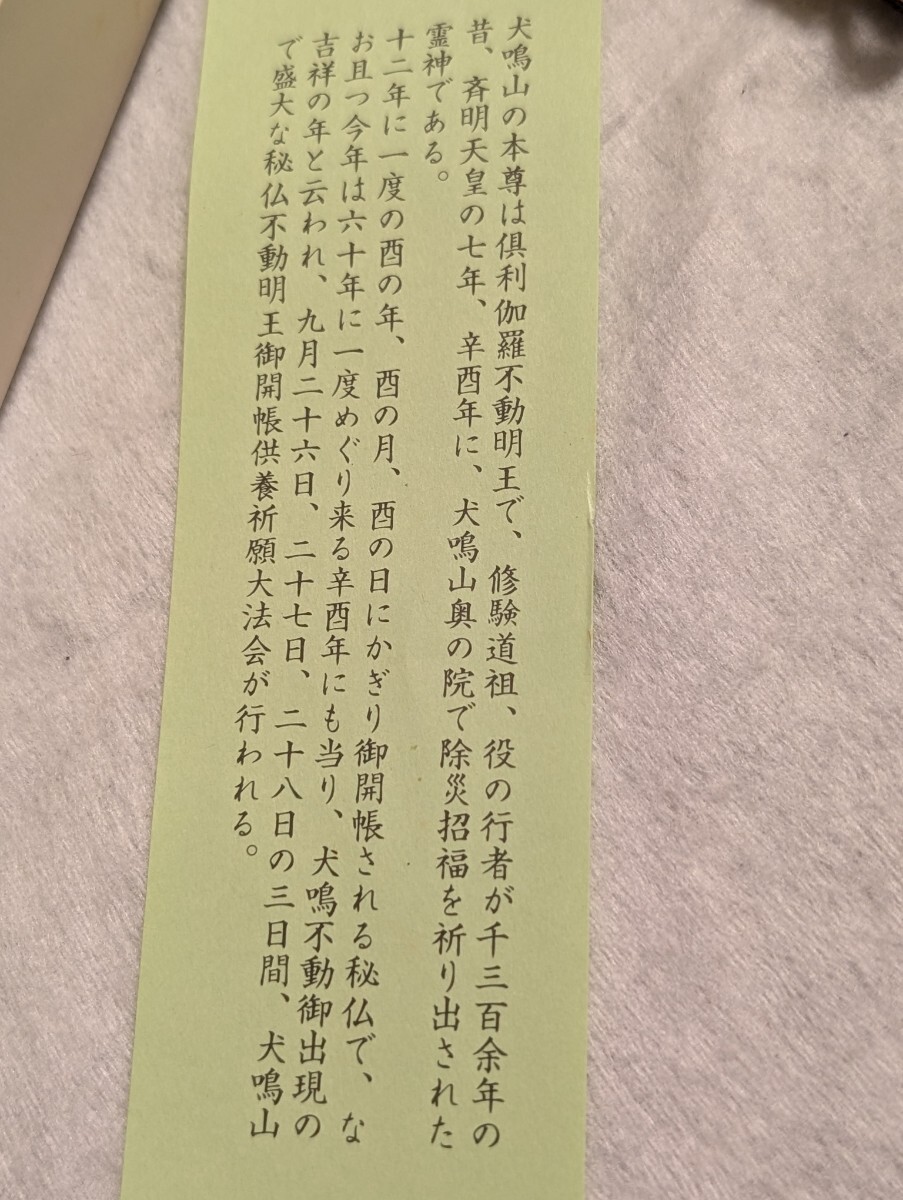 犬鳴山の本尊は倶利伽羅不動明王で、修験道祖、役の行者が千三百余年の
昔、斉明天皇の七年、辛酉年に、犬鳴山奥の院で除災招福を祈り出された
霊神である。
十二年に一度の酉の年、酉の月、酉の日にかぎり御開帳される秘仏で、な
お且つ今年は六十年に一度めぐり来る辛酉年にも当り、犬鳴不動御出現の
吉祥の年と云われ、九月二十六日、二十七日、二十八日の三日間、犬鳴山
で盛大な秘仏不動明王御開帳供養祈願大法会が行われる。